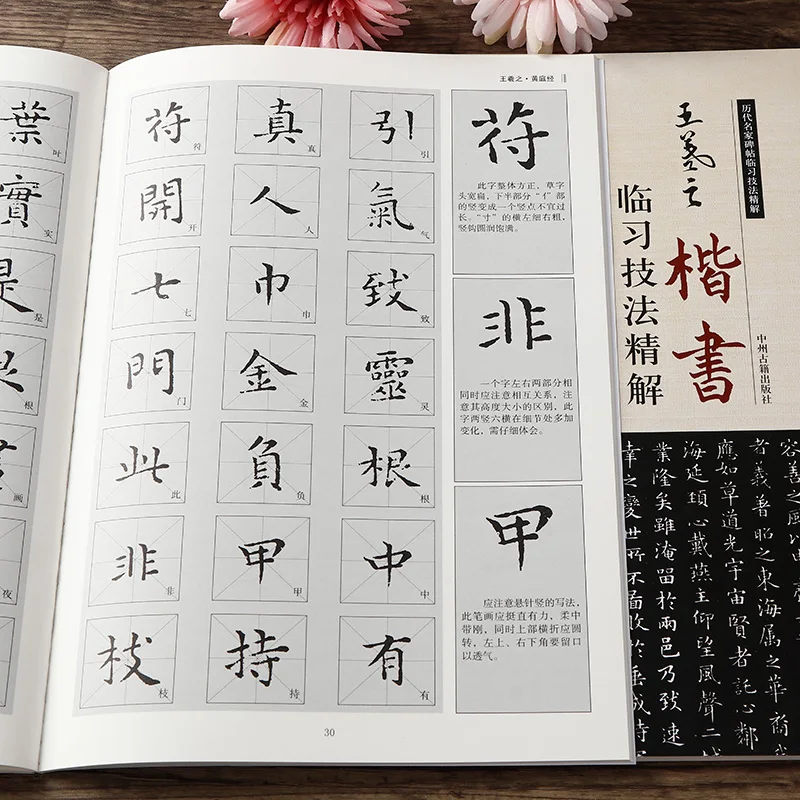 葉 叶
實 实
是 是
根
画
夜
王羲之·黄庭经
符 符 真 真 引 引
開 开 人 人 氣 气
七 七 巾 巾 致 致
門 门 金 金 靈 灵
此 此 負 负 根 根
非 非 甲 甲 中 中
枝 枝 持 持 有 有
符
此字整体方正，草字
头宽扁，下半部分“亻”部
的竖变成一个竖点不宜过
长。“寸”的横左细右粗，
竖钩圆润饱满。
非
一个字左右两部分相
同时应注意相互关系，注
意其高度大小的区别，此
字两竖六横在细节处多加
变化，需仔细体会。
甲
应注意悬针竖的写法，
此笔画应挺直有力，柔中
带刚，同时上部横折应圆
转，左上、右下角要留口
以透气。
30
历代名家碑帖临习技法精解
王羲之
楷書
临习技法精解
中州古籍出版社
容善之風以申
者義著昭之東海属之華裔
應如草道光宇宙賢者託心鄰
海延頸心戴燕主仰望風聲二城
業隆矣雖淹留於兩邑乃致速
幸之變世所不圖敗於垂成時